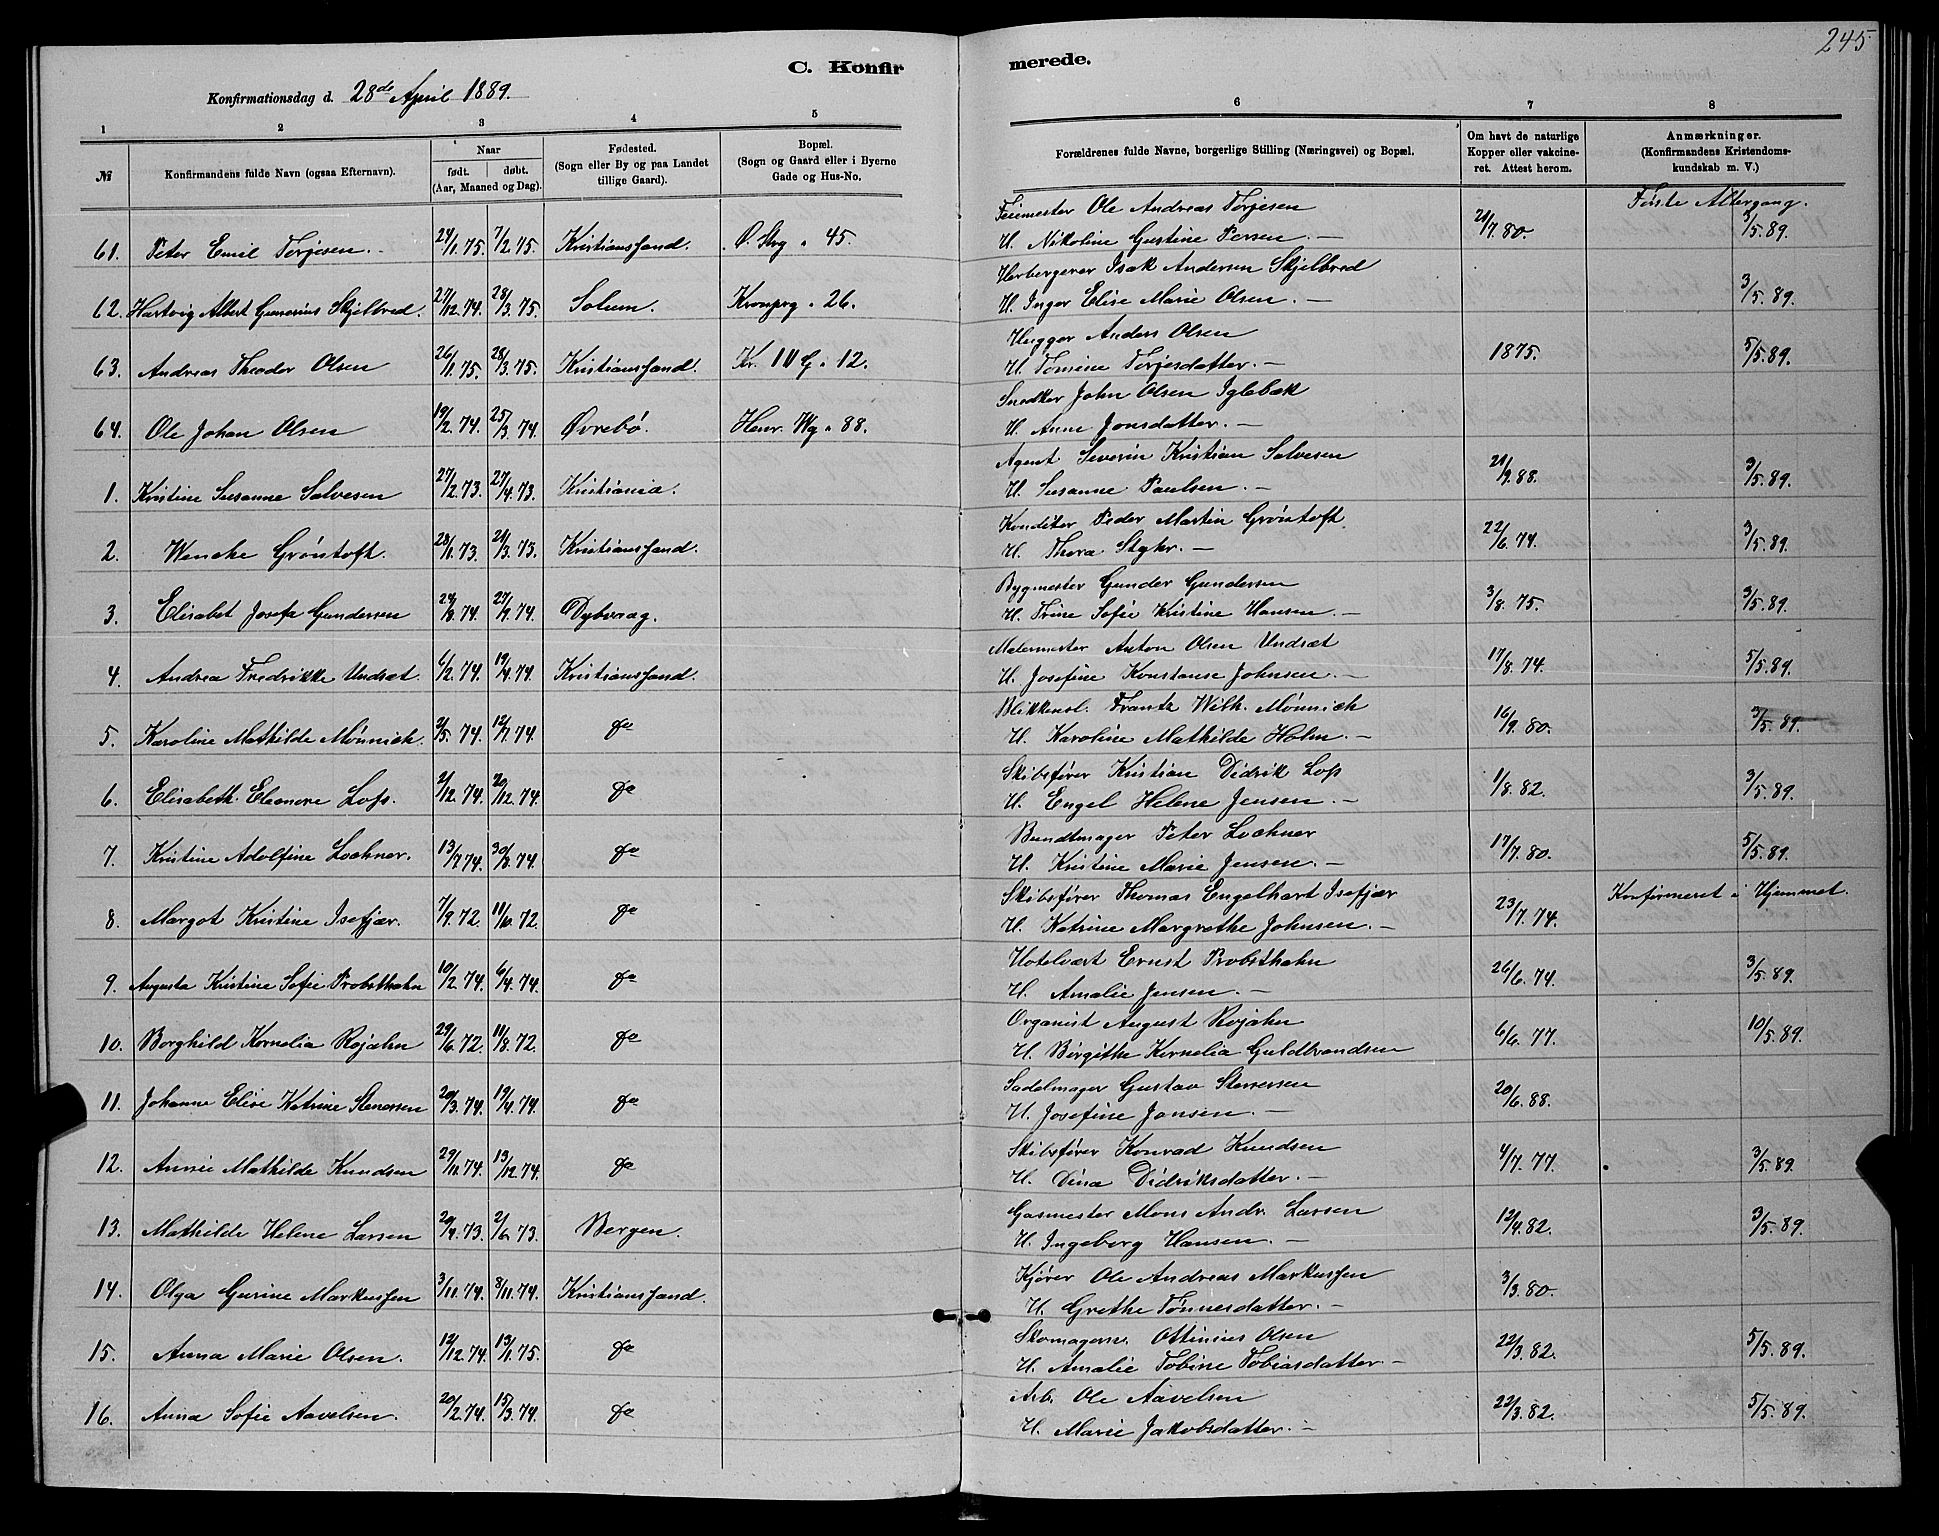 245
C. Konfirmerede.
Konfirmationsdag d. 28de April 1889.
1 2 3 4 5 6 7 8
№ Konfirmandens fulde Navn (ogsaa Efternavn). Naar født. døbt. (Aar, Maaned og Dag). Fødested. (Sogn eller By og paa Landet tillige Gaard). Bopæl. (Sogn og Gaard eller i Byerne Gade og Hus-No. Forældrenes fulde Navne, borgerlige Stilling (Næringsvei) og Bopæl. Om havt de naturlige Kopper eller vakcineret. Attest herom. Anmærkninger. (Konfirmandens Kristendomskundskab m. V.)
Første Altergang.
Feiemester Ole Andreas Torjesen
61. Peter Emil Torjesen. 24/1.75. 7/2.75. Kristianssand. Ø. Strg " 45. H. Nikoline Gustine Persen. — 21/7.80. 3/5.89.
Herbergerer Isak Andersen Skjelbred
62. Hartvig Albert Gunerius Skjelbred. 27/12.74. 28/3.75. Solum. Kronprg " 26. H. Inger Elise Marie Olsen. — 3/5.89.
Hugger Anders Olsen
63. Andreas Theodor Olsen 26/1.75. 28/3.75. Kristianssand. Kr. IV G " 12. H. Tomine Torjesdatter. — 1875. 5/5.89.
Snedker John Olsen Iglebæk
64. Ole Johan Olsen 19/2.74. 25/3.74. Øvrebø. Henr. Wg " 88. H. Anne Jonsdatter. —
Agent Severin Kristian Salvesen
1. Kristine Susanne Salvesen 27/2.73. 27/4.73. Kristiania. H. Susanne Paulsen. — 21/9.88. 3/5.89.
Konditor Peder Martin Grøntoft
2. Wenche Grøntoft. 28/1.73. Kristianssand. H. Thora Styhr. — 22/6.74. 3/5.89.
Bygmester Gunder Gundersen
3. Elisabet Josefa Gundersen 24/8.74. 27/9.74. Dybvaag. H. Trine Sofie Kristine Hansen. — 3/8.75. 3/5.89.
Malermester Anton Olsen Undsæt
4. Andrea Fredrikke Undsæt. 6/2.74. 19/4.74. Kristianssand. H. Josefine Konstanse Johnsen. — 17/8.74. 5/5.89.
Blikkensl. Frantz Wilh. Mønnich
5. Karoline Mathilde Mønnich. 2/5.74. 12/7.74. do H. Karoline Mathilde Holm. — 16/9.80. 3/5.89.
Skibsfører Kristian Didrik Lofs
6. Elisabeth Eleonore Lofs. 2/12.74. 20/12.74. do H. Engel Helene Jensen. — 1/8.82. 3/5.89.
Bundtmager Peter Lochner
7. Kristine Adolfine Lochner. 13/7.74. 30/8.74. do H. Kristine Marie Jensen. — 17/7.80. 5/5.89.
Skibsfører Thomas Engelhart Isefjær
8. Margot Kristine Isefjær. 7/9.72. 11/10.72. do H. Katrine Margrethe Johnsen. — 23/7.74. Konfirmeret i Hjemmet.
Hotelvært Ernst Probsthahn
9. Augusta Kristine Sofie Probsthahn 10/2.74. 6/4.74. do H. Amalie Jensen. — 26/6.74. 3/5.89.
Organist August Rojahn
10. Borghild Kornelia Rojahn 29/6.72. 11/8.72. do H. Birgithe Kornelia Guldbrandsen 6/6.77. 10/5.89.
Sadelmager Gustav Stenersen
11. Johanne Elise Katrine Stenersen 20/3.74. 19/4.74. do H. Josefine Jansen. — 20/6.88.
Skibsfører Konrad Knudsen
12. Annie Mathilde Knudsen 29/10.74. 13/12.74. do H. Dina Didriksdatter. — 4/7.77. 3/5.89.
Gasmester Mons Andr. Larsen
13. Mathilde Helene Larsen 20/4.73. 2/6.73. Bergen. H. Ingeborg Hansen. — 12/4.82. 3/5.89.
Kjører Ole Andreas Markussen
14. Olga Gurine Markussen 3/10.74. 8/11.74. Kristianssand. H. Grethe Tønnesdatter. — 3/3.80.
Skomagerm. Ottinius Olsen
15. Anna Marie Olsen. 12/12.74. 13/1.75. do H. Amalie Tobine Tobiasdatter — 22/3.82. 5/5.89.
Arb. Ole Aavelsen
16. Anna Sofie Aavelsen. 20/2.74. 15/3.74. do H. Marie Jakobsdatter. — 22/3.82. 5/5.89.